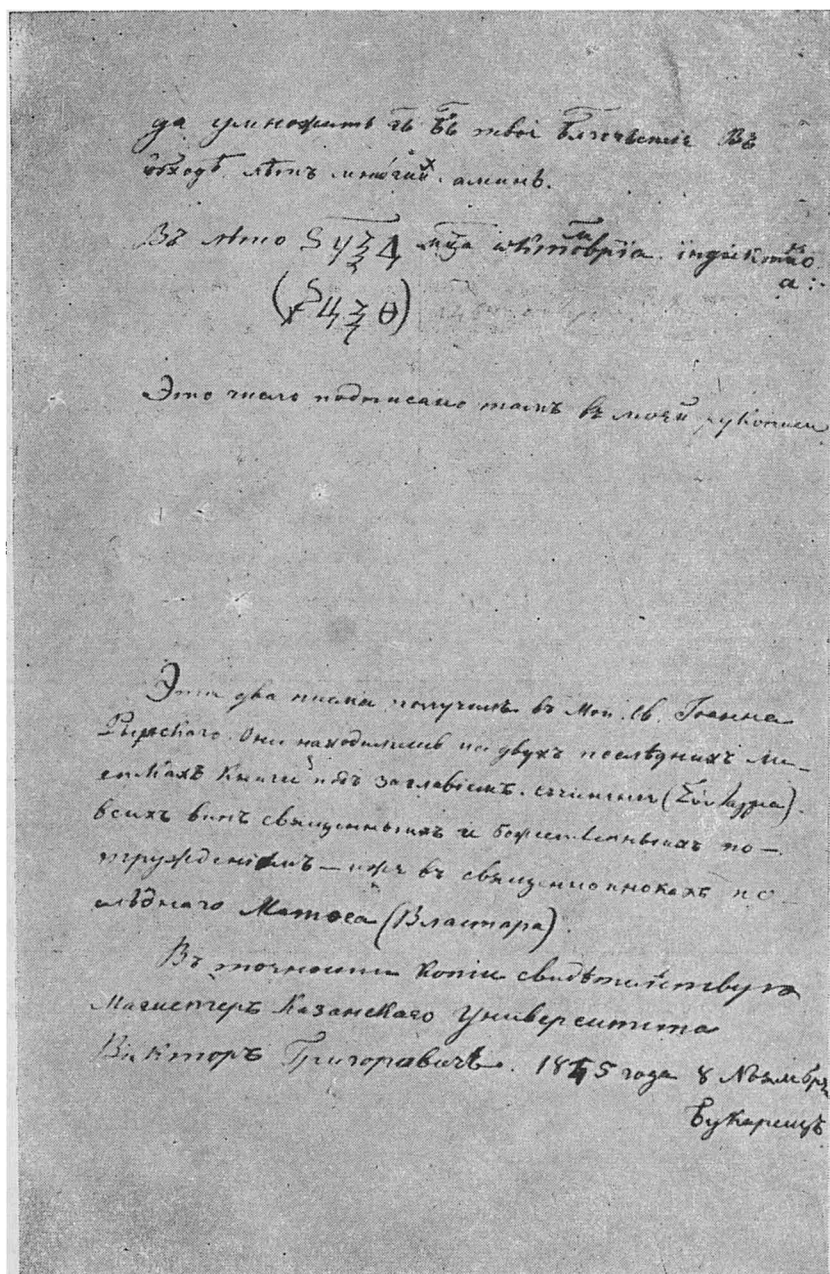 да умножитъ гь бь твоі блгочьстіа Въ
ѡбходѣ лѣтъ многии х аминь.
Въ лѣто ЅЧѮД мца ѡктоврїа індиктио
а :
(҂ЅЧѮѲ)
Это число подписано тамъ въ моей рукописи
Эти два письма получилъ въ Мон. Св. Іоанна
Рыльскаго. Они находились на двухъ послѣднихъ ли—
сткахъ Книги подъ заглавіемъ. сочиненіе (Σύνταγμα).
всѣхъ винъ священныхъ и божественныхъ по—
труждениемъ — иже въ священноинокахъ по—
слѣднаго Матѳеа (Властара).
Въ точности копіи свидѣтельствую
Магистеръ Казанскаго Университета
Викторъ Григоровичъ. 1845 года 8 Ноембрѧ
Букарещъ